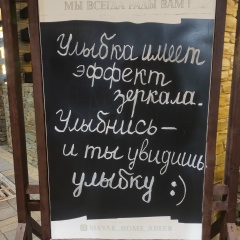 МЫ ВСЕГДА РАДЫ ВАМ !
Улыбка имеет
эффект
зеркала.
Улыбнись —
и ты увидишь
улыбку :)